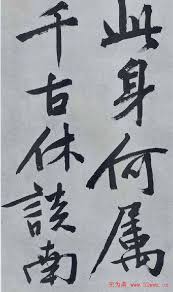 此身何属
千古休談南